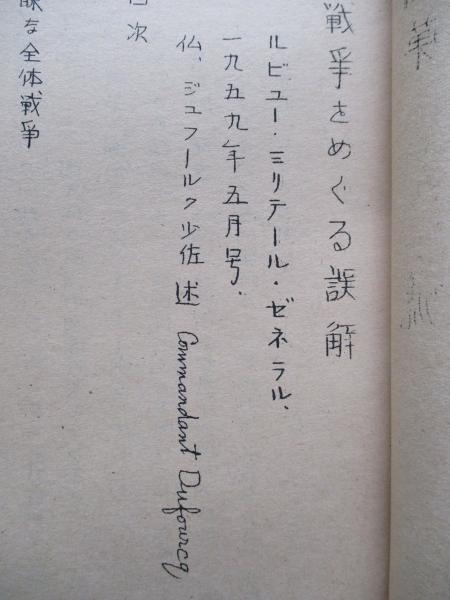 戦争をめぐる誤解
ルビュー・ミリテール・ゼネラル、
一九五九年五月号.
仏、ジュフールク少佐 述 Commandant Dufourcq
目次
な全体戦争